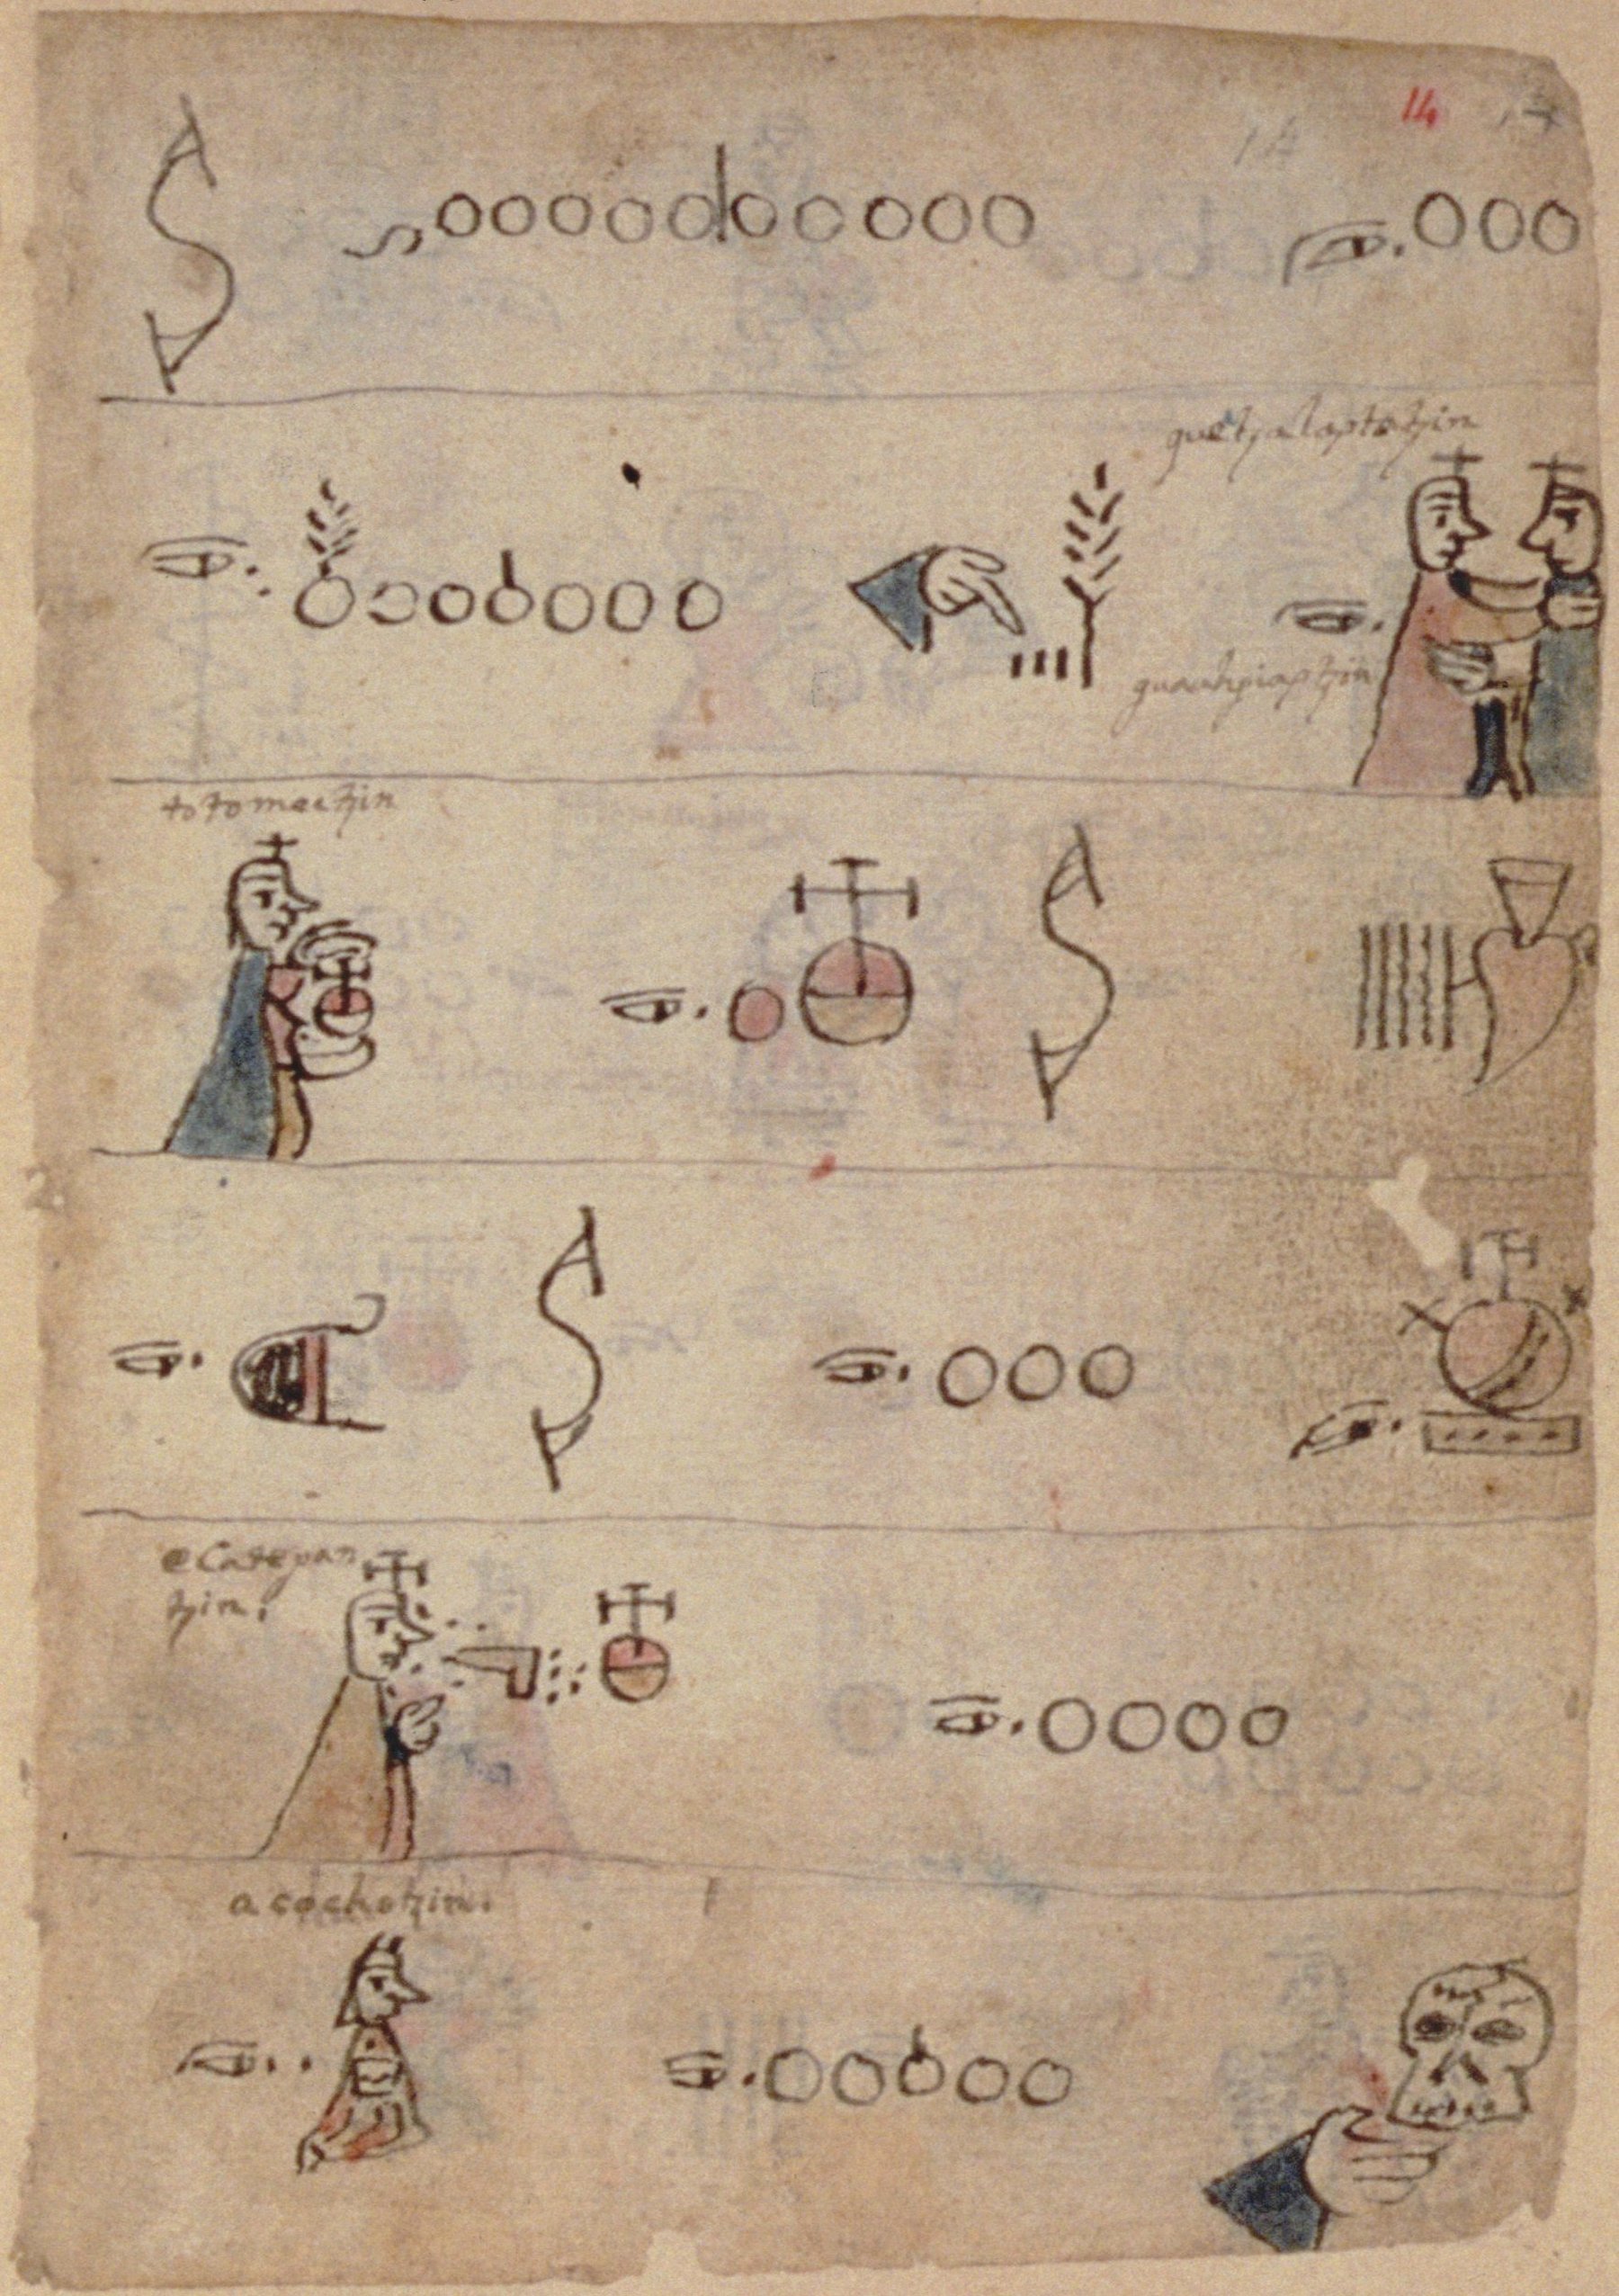 14
14
quetzalaptatzin
quauhpiaptzin
totomactzin
eCatepan
tzin.
acochotzin.